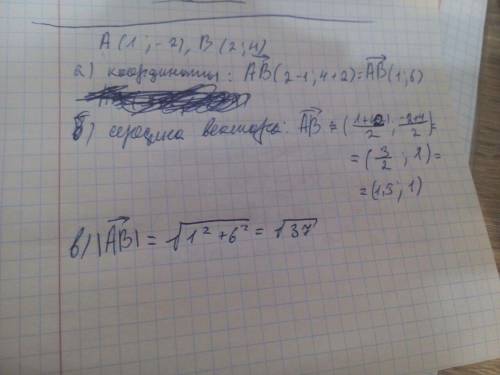 A (1 ; -2), B (2 ; 4)
а) координаты : AB⃗ (2-1 ; 4+2) = AB⃗ (1 ; 6)
б) середина вектора : AB⃗ = (1+2/2 ; -2+4/2) =
= (3/2 ; 1) =
= (1,5 ; 1)
в) |AB⃗| = √(1² + 6²) = √37